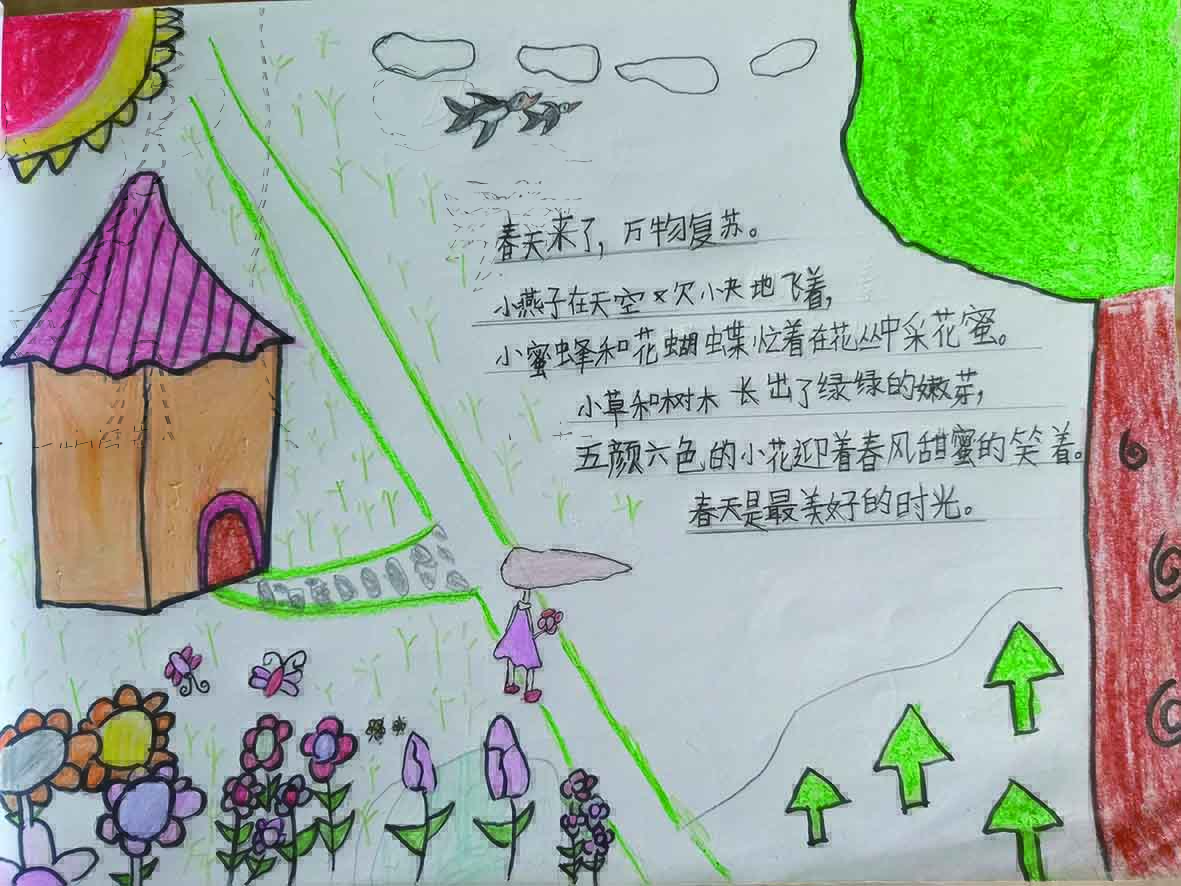 春天来了，万物复苏。
小燕子在天空欢快地飞着，
小蜜蜂和花蝴蝶忙着在花丛中采花蜜。
小草和树木长出了绿绿的嫩芽，
五颜六色的小花迎着春风甜蜜的笑着。
春天是最美好的时光。